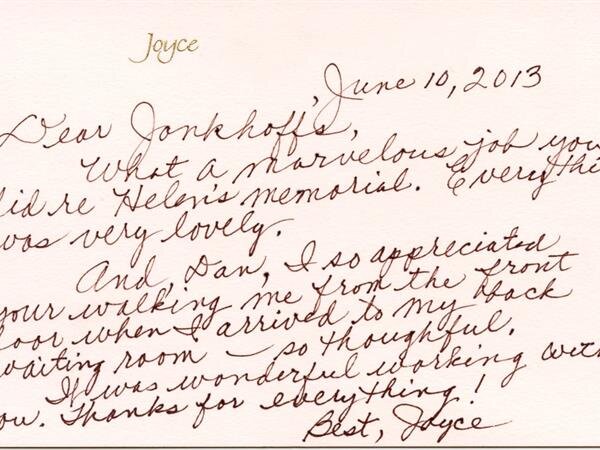 Joyce
June 10, 2013
Dear Jonkhoffs,
What a marvelous job you
did re Helen's memorial. Everythi
was very lovely.
And, Dan, I so appreciated
your walking me from the front
door when I arrived to my back
waiting room — so thoughtful.
It was wonderful working with
ou. Thanks for everything!
Best, Joyce